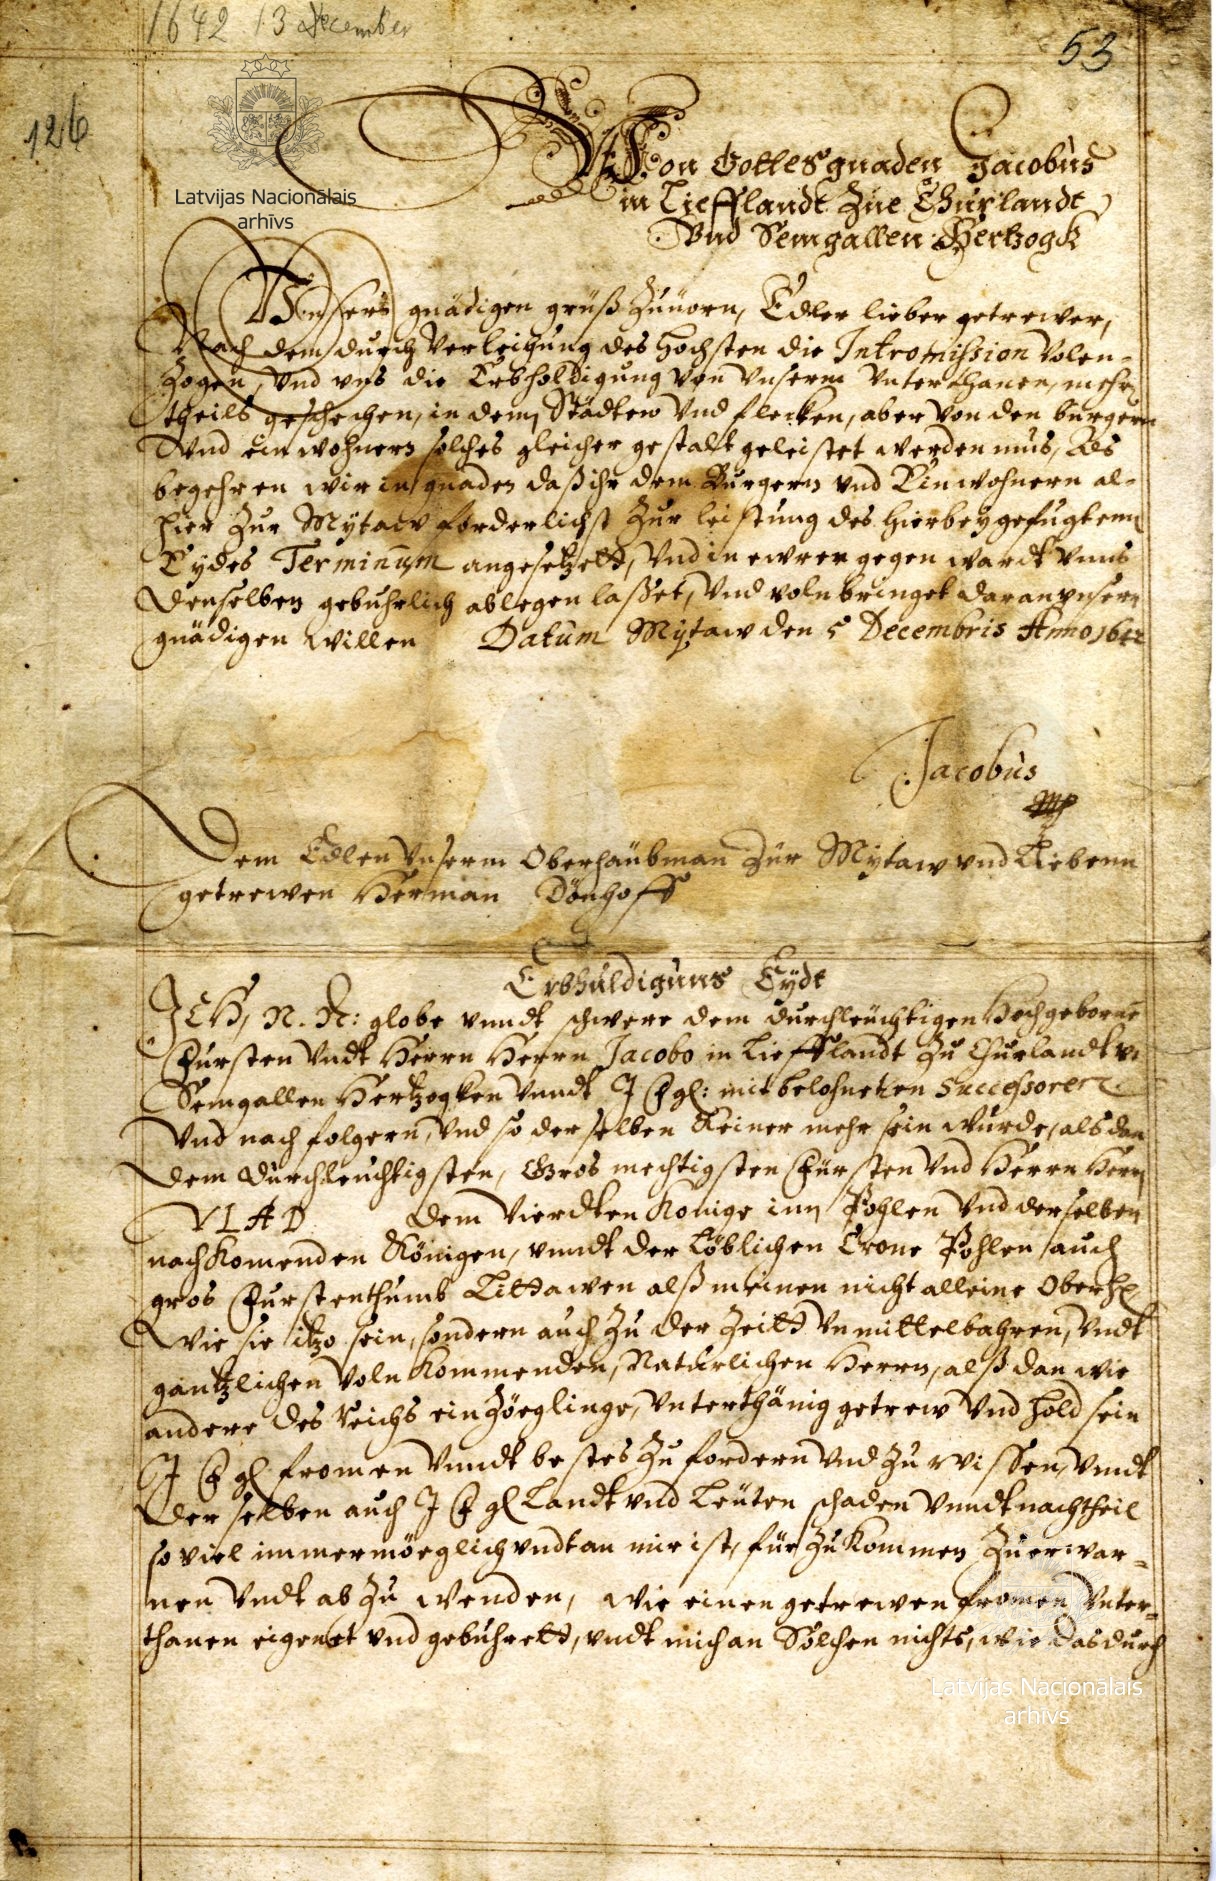 1642 13 December
53
126
Latvijas Nacionālais
arhīvs
Von Gottes gnaden Jacobus
in Liefflandt Zue Churlandt
Vnd Semgallen Hertzogk
Vnsern gnädigen grüß Zuuorn, Edler lieber getrewer,
Nach dem durch Verleihung des Hochsten die Intromission Volen-
Zogen, Vnd vns die Erbholdigung Von Vnserm Vnterthanen, mehr
theils geschehen, in dem Städten Vnd flecken, aber Von den burgern
Vnd einwohnern solches gleicher gestalt geleistet werden mus, Als
begehren wir in gnaden daß ihr dem Burgern vnd Einwohnern al-
hier Zur Mytaw forderlichst Zur leistung des hierbey gefugtenn
Eydes Terminum angesetzett, Vnd in ewrer gegenwardt Vnns
Denselben gebuhrlich ablegen lasset, Vnd volnbringet daran vnsern
gnädigen willen Datum Mytaw den 5 Decembris Anno 1642
Jacobus
Mp
Dem Edlen Vnserm Oberhäubman Zur Mytaw vnd Liebenn
getrewen Herman Dönhoff
Erbhuldigungs Eydt
ICH, N. N: globe vnndt schwere dem durchleuchtigen Hochgeborne
Fursten Vndt Herrn Herrn Jacobo in Liefflandt Zu Churlandt v.
Semgallen Hertzogken Vnndt J F gl: mit belehneten Successoren
Vnd nachfolgern, Vnd so derselben Keiner mehr sein wurde, als dan
dem Durchleuchtigsten, Gros mechtigsten Fürsten Vnd Herrn Herrn
VLAD dem Vierdten Konige inn Pohlen Vnd derselben
nachKomenden Königen, vnndt der Löblichen Crone Pohlen auch
gros Furstenthumb Littawen alß meinen nicht alleine Oberh
Wie sie itzo sein, sondern auch Zu der Zeitt Vnmittelbahren, Vndt
gantzlichen VolnKommenden, Naturlichen Herrn, alß dan wie
andere des Reichs einZöeglinge, Vnterthänig getrew Vnd hold sein
J F gl fromen Vnndt bestes Zu fordern Vnd Zu wissen, Vnndt
derselben auch J F gl Landt vnd Leüten schaden Vnndt nachtheil
so viel immermöeglich vndt an mir ist, für Zu Kommen Zu erwar-
nen Vndt ab Zu wenden, wie einen getrewen fromen Vnter-
thanen eigenet vnd gebuhrett, vndt mich an Solchen nichts, wie das durch
Latvijas Nacionālais
arhīvs